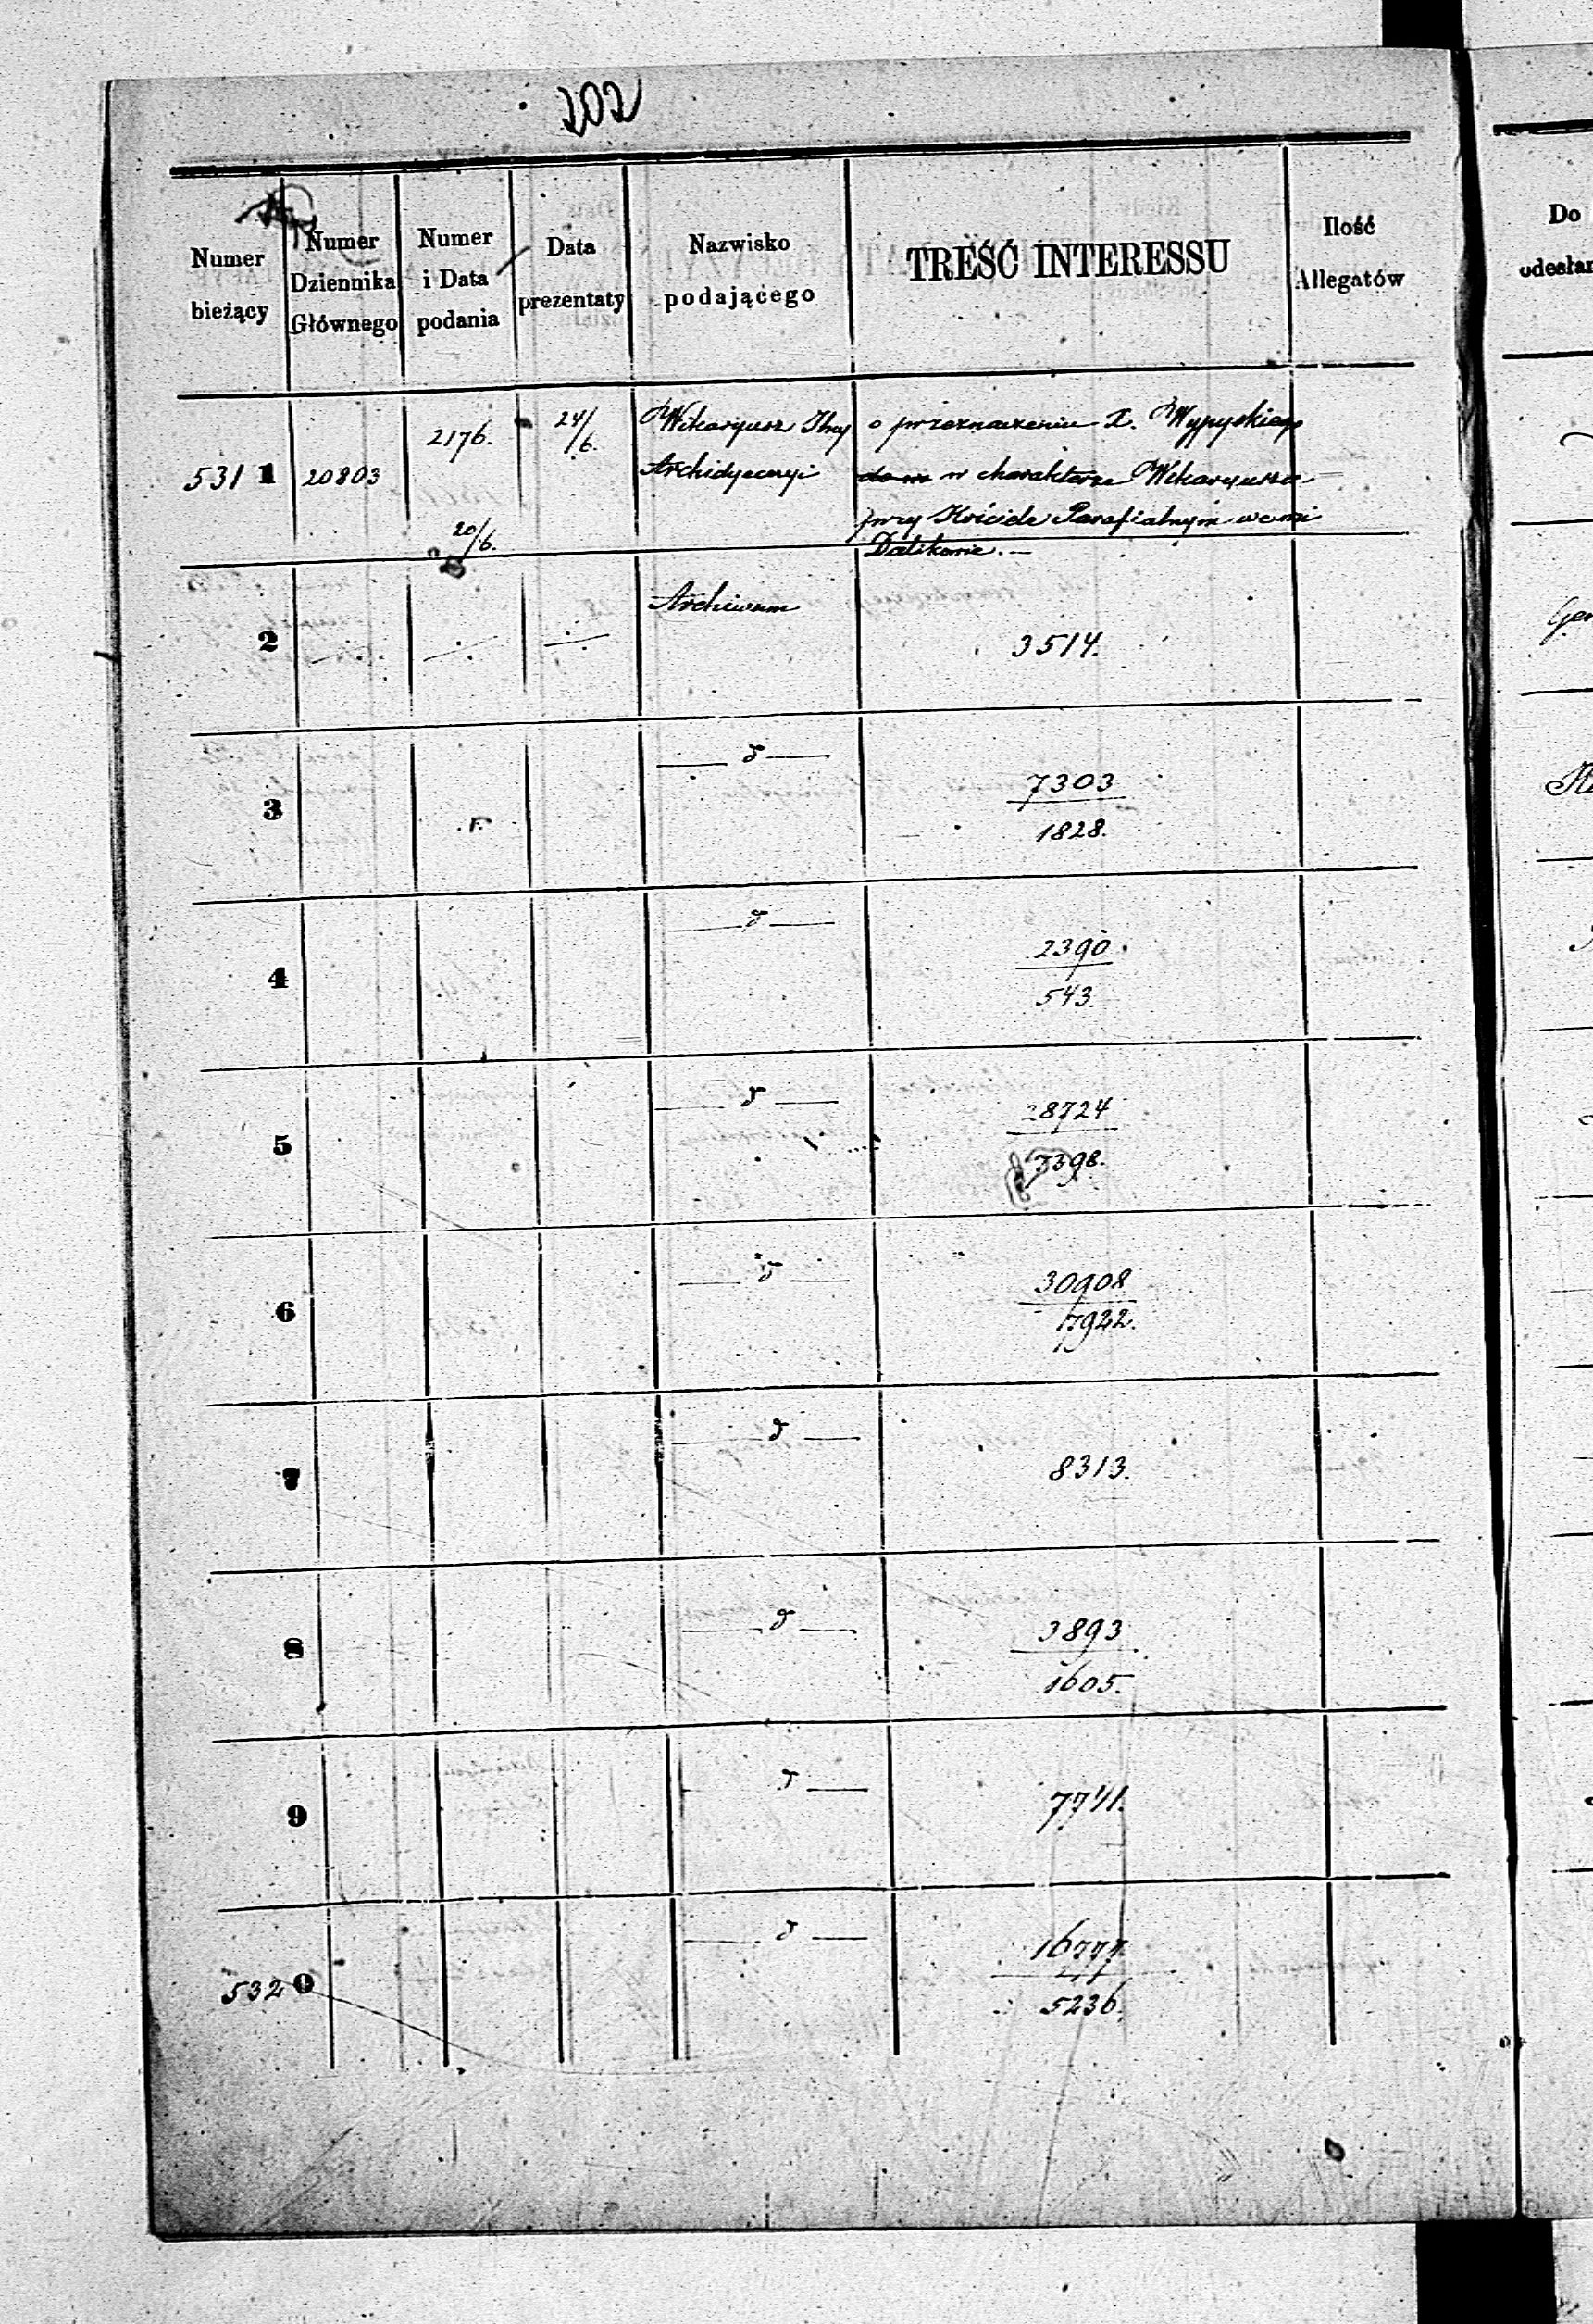 202
Numer bieżący
Numer Dziennika Głównego
Numer i Data podania
Data prezentaty
Nazwisko podającego
TREŚĆ INTERESSU
Ilość Allegatów
Do
odesłan
5311
20803
2176.
20/6.
24/6.
Wikaryusz
Archidyecezyi
o przeznaczeniu X. Wypyskiego
w charakterze Wikaryusza
przy Kościele Parafialnym we wsi
Dalikowie.
2
Archiwum
3514.
3
d
7303
1828.
4
d
2390
543.
5
d
28724
7398.
6
d
30908
7922.
7
d
8313.
8
d
3893
1605.
9
d
7741.
5320
d
16777
5236.